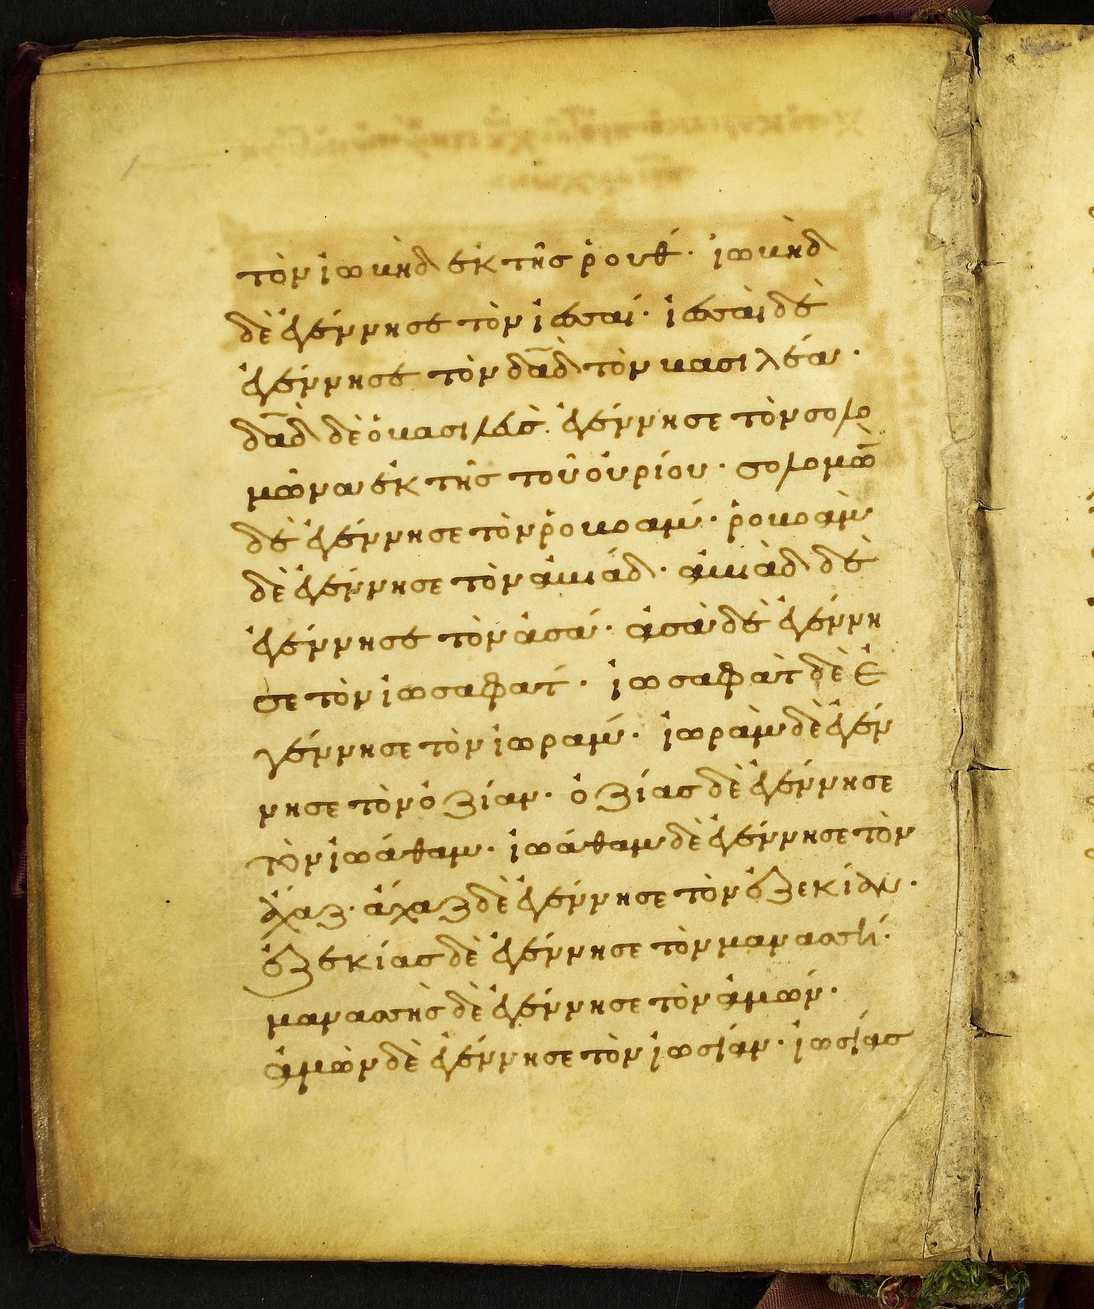 τὸν ἰωβὴδ ἐκ τῆς ῥουθ· ἰωβὴδ
δὲ ἐγέννησε τὸν ἰεσσαί· ἰεσσαὶ δὲ
ἐγέννησε τὸν δαδ τὸν βασιλέα·
δαδ δὲ ὁ βασιλεὺς ἐγέννησε τὸν σολο
μῶνα ἐκ τῆς τοῦ οὐρίου· σολομὼ
δὲ ἐγέννησε τὸν ῥοβοάμ· ῥοβοὰμ
δὲ ἐγέννησε τὸν ἀβιάδ· ἀβιὰδ δὲ
ἐγέννησε τὸν ἀσά· ἀσὰ δὲ ἐγέννη
σε τὸν ἰωσαφατ· ἰωσαφὰτ δὲ ἐ
γέννησε τὸν ἰωραμ· ἰωρὰμ δὲ ἐγέν
νησε τὸν ὀζίαν· ὀζίας δὲ ἐγέννησε
τὸν ἰωάθαμ· ἰωάθαμ δὲ ἐγέννησε τὸν
ἄχαζ· ἄχαζ δὲ ἐγέννησε τὸν ἐζεκίαν·
ἐζεκίας δὲ ἐγέννησε τὸν μανασσῆ·
μανασσὴς δὲ ἐγέννησε τὸν ἀμών·
ἀμὼν δὲ ἐγέννησε τὸν ἰωσίαν· ἰωσίας